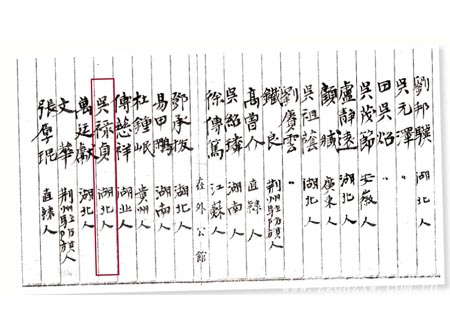 劉邦驥 湖北人
吳元澤 〃
田吳炤 〃
吳茂節 安徽人
盧靜遠 湖北人
顧臧 廣東人
吳祖蔭 湖北人
劉賡雲 〃
鐵良 荆州駐防旗人
高曾介 直隸人
吳紹璘 湖南人
徐傳篤 江蘇人
在外公館
鄧承拔 湖北人
易甲鵬 湖南人
杜鍾岷 貴州人
傅慈祥 湖北人
吳禄貞 湖北人
萬廷獻 湖北人
文華 荆州駐防旗人
張厚琨 直隸人